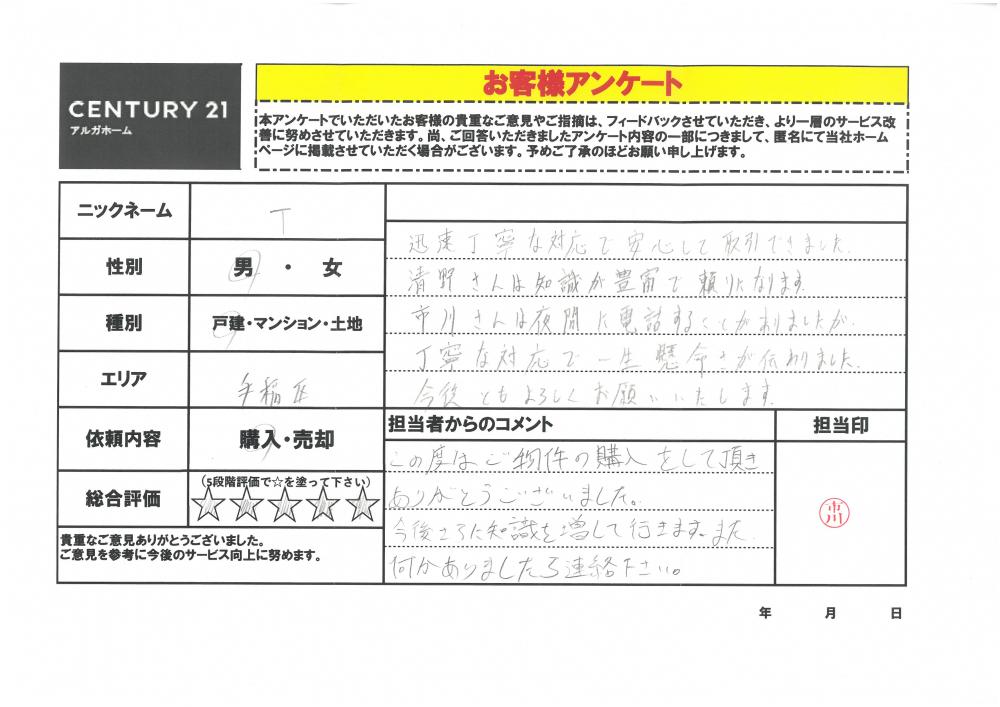 CENTURY 21
アルガホーム
お客様アンケート
本アンケートでいただいたお客様の貴重なご意見やご指摘は、フィードバックさせていただき、より一層のサービス改
善に努めさせていただきます。尚、ご回答いただきましたアンケート内容の一部につきまして、匿名にて当社ホーム
ページに掲載させていただく場合がございます。予めご了承のほどお願い申し上げます。
ニックネーム
T
性別
男・女
種別
戸建・マンション・土地
エリア
手稲区
依頼内容
購入・売却
総合評価
(5段階評価で☆を塗って下さい)
貴重なご意見ありがとうございました。
ご意見を参考に今後のサービス向上に努めます。
迅速丁寧な対応で安心して取引できました。
清野さんは知識が豊富で頼りになります
市川さんは夜間に電話することがありましたが、
丁寧な対応で一生懸命さが伝わりました。
今後ともよろしくお願いいたします。
担当者からのコメント
担当印
この度はご物件の購入をして頂き
ありがとうございました。
今後さらに知識を増して行きます。また
何かありましたら連絡下さい。
市川
年 月 日